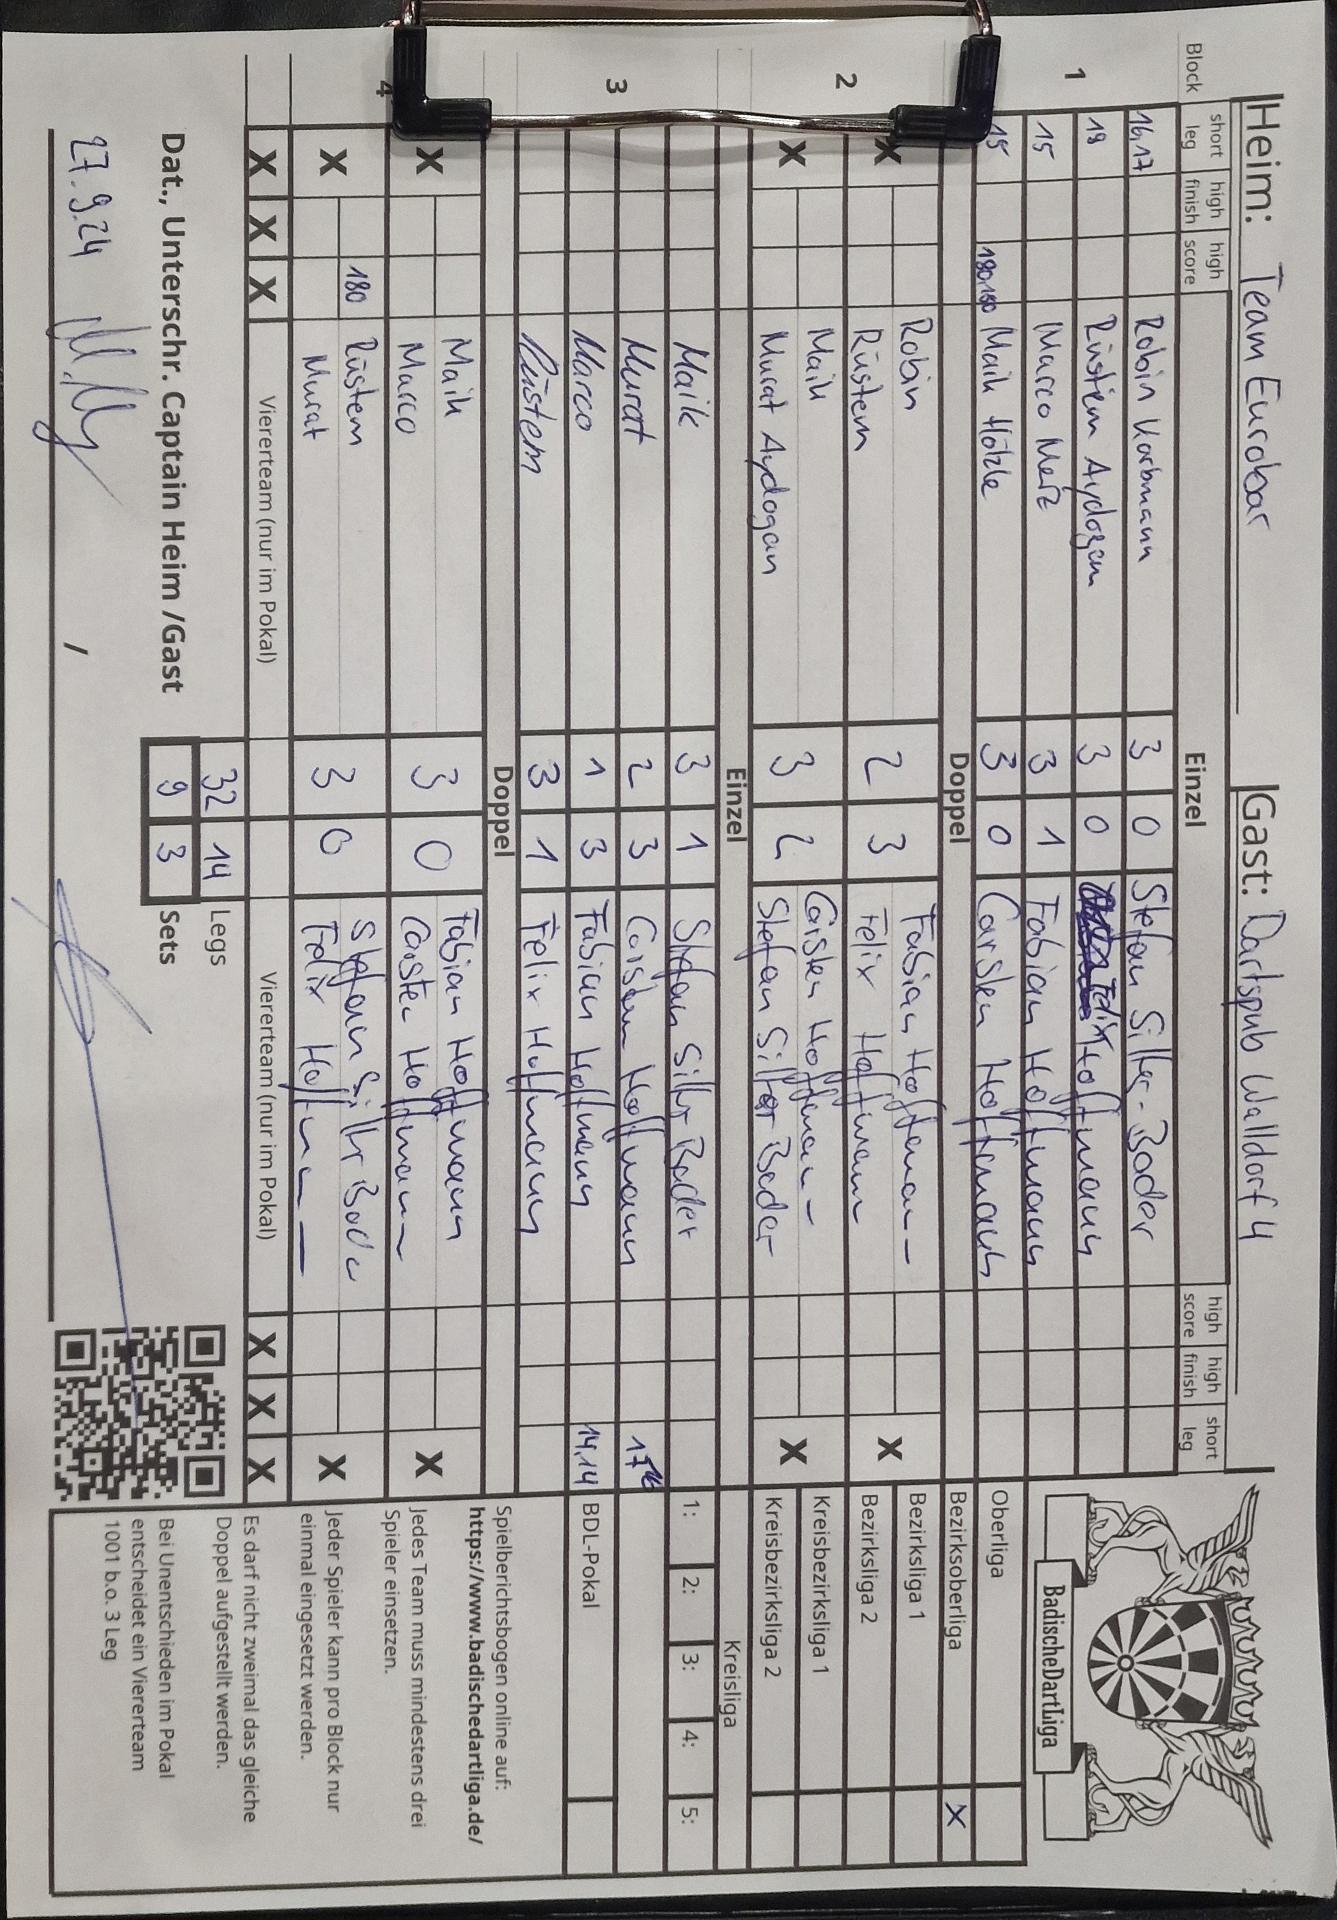 Heim: Team Eurobar Gast: Dartspub Walldorf 4
Block short leg high finish high score Einzel high score high finish short leg
1
16,17 Robin Korbmann 3 0 Stefan Silker-Bader
18 Rüstem Aydogan 3 0 Felix Hoffmann
15 Marco Merz 3 1 Fabian Hoffmann
15 180,180 Maik Hölzle 3 0 Carsten Hoffmann
Doppel
2
X Robin 2 3 Fabian Hoffmann X
Rüstem Felix Hoffmann
X Maik 3 2 Carsten Hoffmann X
Murat Aydogan Stefan Silker Bader
Einzel
3
Maik 3 1 Stefan Silker Bader
Murat 2 3 Carsten Hoffmann
Marco 1 3 Fabian Hoffmann 14,14
Rüstem 3 1 Felix Hoffmann
Doppel
4
X Maik 3 0 Fabian Hoffmann X
Marco Carsten Hoffmann
X 180 Rüstem 3 0 Stefan Silker Bader X
Murat Felix Hoffmann
X X X Viererteam (nur im Pokal) Viererteam (nur im Pokal) X X X
32 14 Legs
Dat., Unterschr. Captain Heim /Gast 9 3 Sets
27.9.24 /
BadischeDartLiga
Oberliga
Bezirksoberliga X
Bezirksliga 1
Bezirksliga 2
Kreisbezirksliga 1
Kreisbezirksliga 2
Kreisliga
1: 2: 3: 4: 5:
BDL-Pokal
Spielberichtsbogen online auf:
https://www.badischedartliga.de/
Jedes Team muss mindestens drei
Spieler einsetzen.
Jeder Spieler kann pro Block nur
einmal eingesetzt werden.
Es darf nicht zweimal das gleiche
Doppel aufgestellt werden.
Bei Unentschieden im Pokal
entscheidet ein Viererteam
1001 b.o. 3 Leg